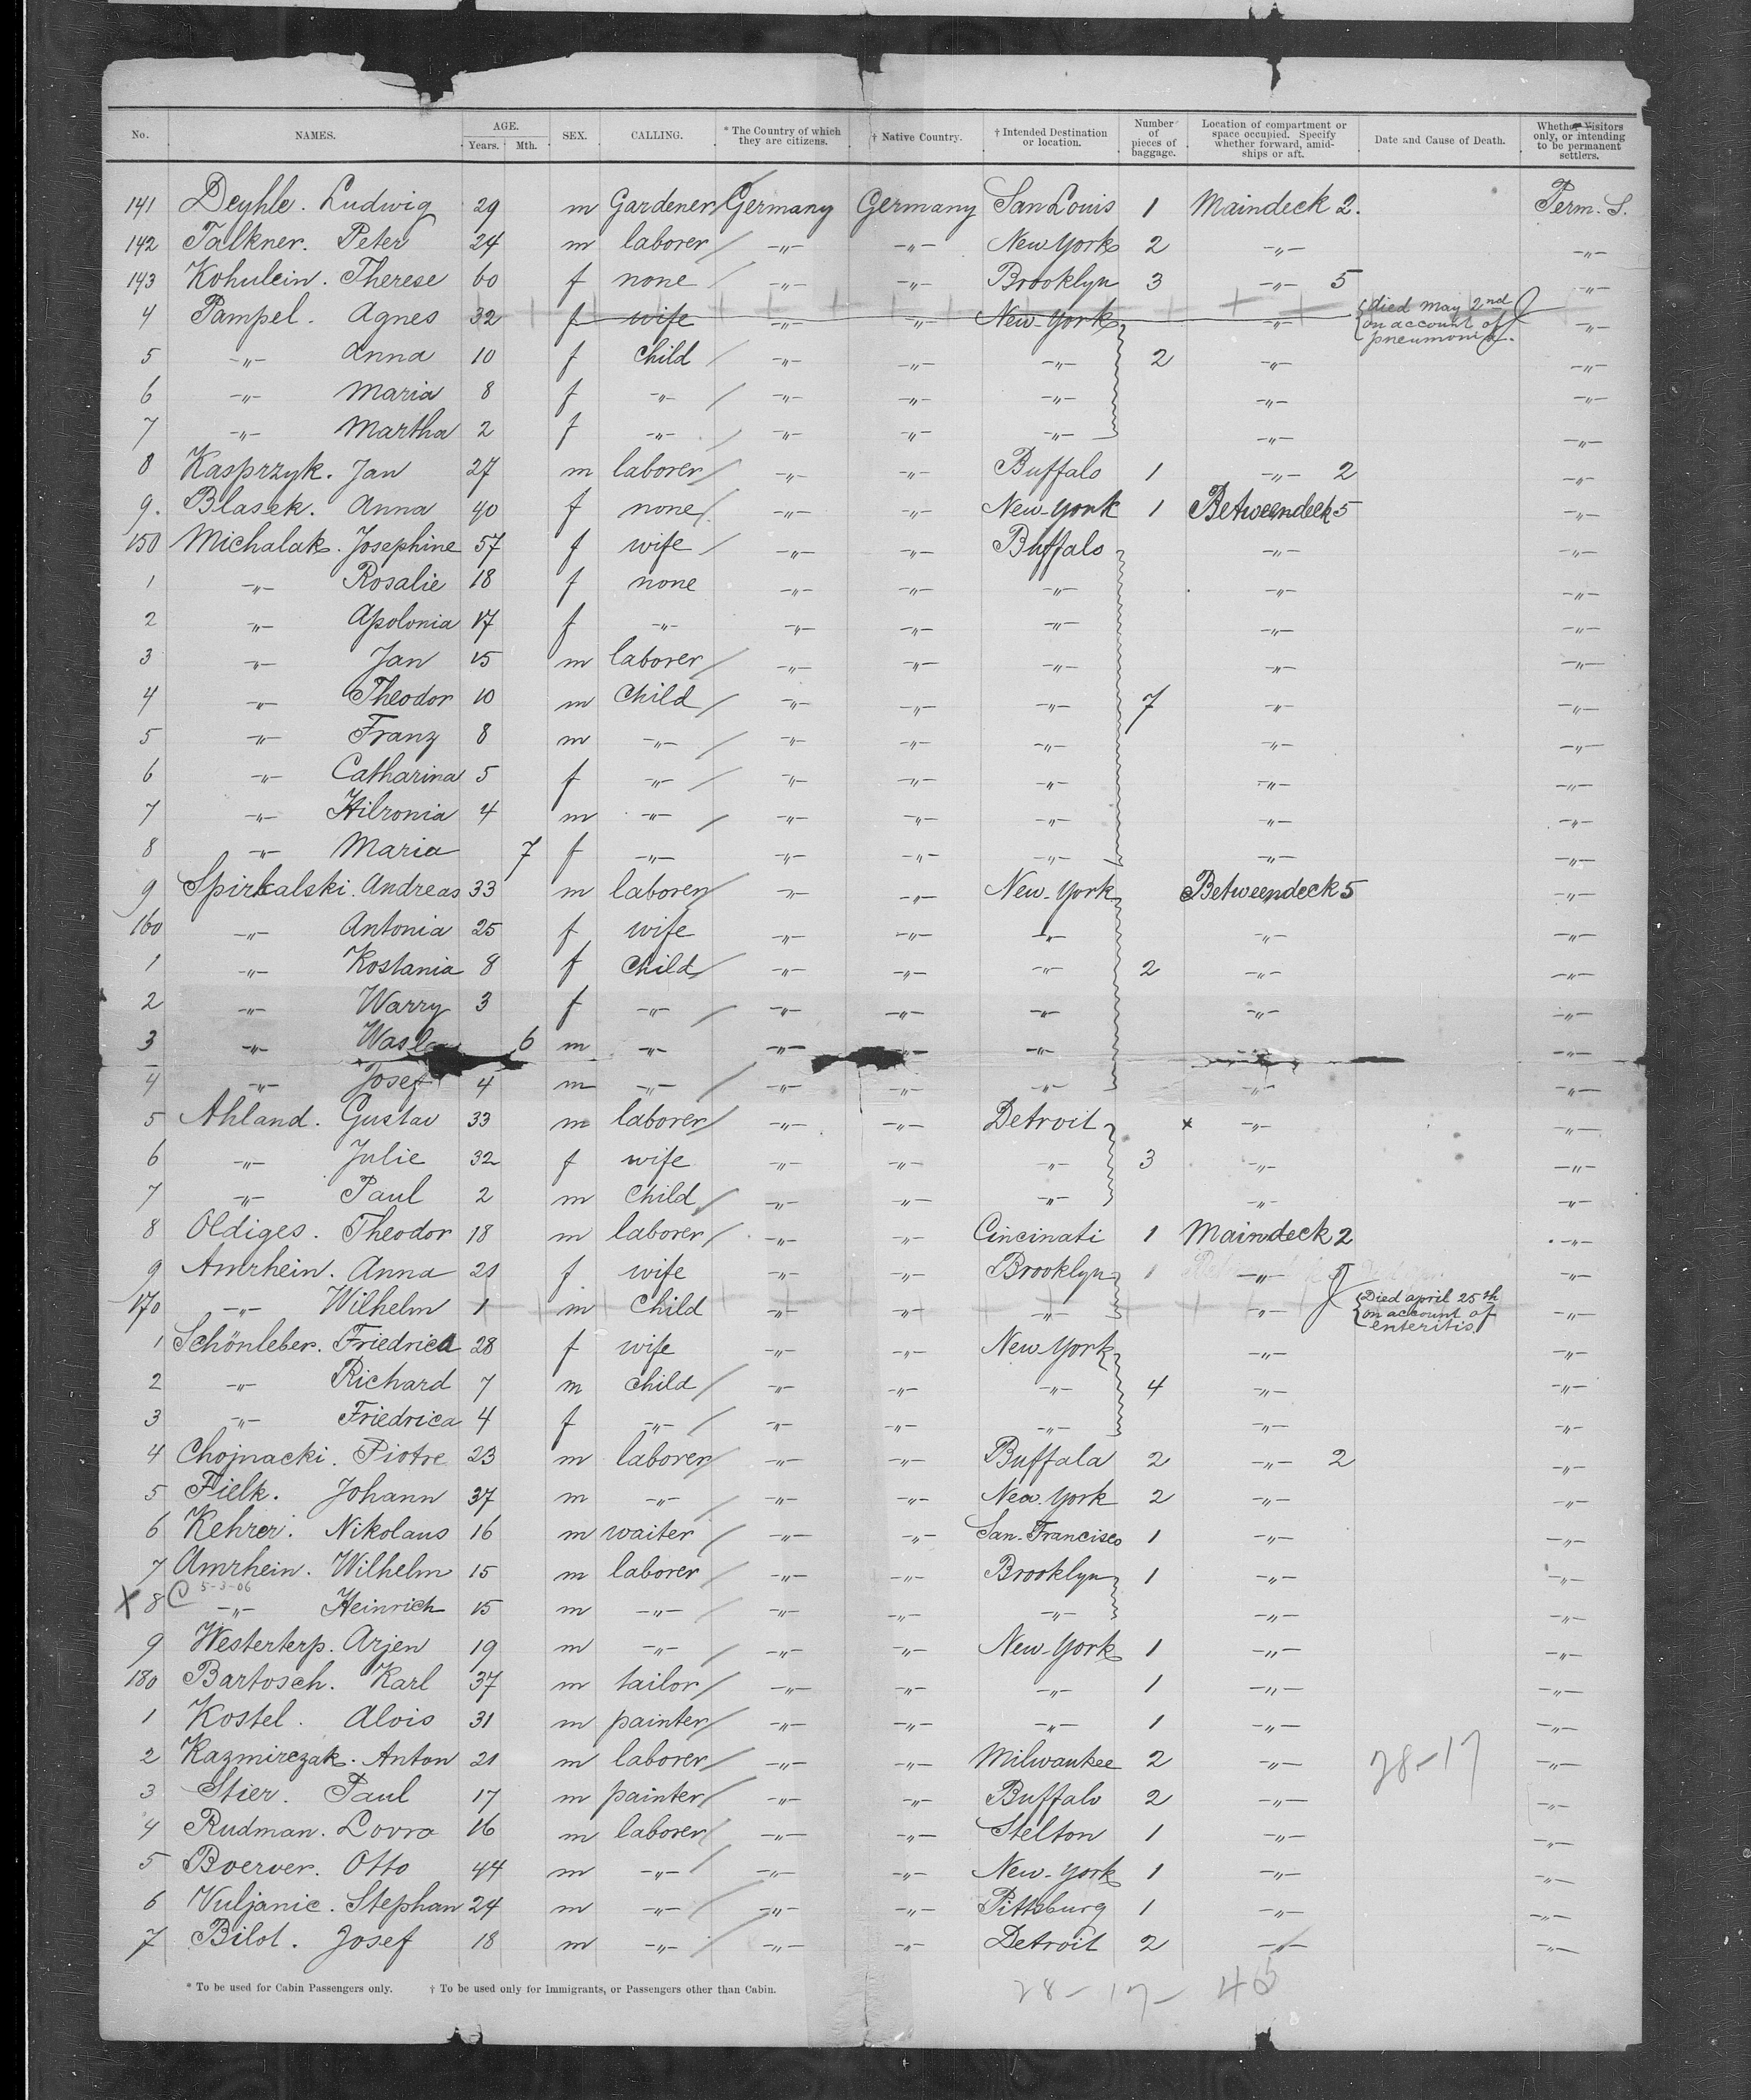 No. NAMES. AGE. Years. Mth. SEX. CALLING. * The Country of which they are citizens. † Native Country. † Intended Destination or location. Number of pieces of baggage. Location of compartment or space occupied. Specify whether forward, amidships or aft. Date and Cause of Death. Whether Visitors only, or intending to be permanent settlers.
141 Deyhle. Ludwig 29 m Gardener Germany Germany San Louis 1 Maindeck 2. Perm. S.
142 Falkner. Peter 24 m laborer -"- -"- New York 2 -"- -"-
143 Kohulein. Therese 60 f none -"- -"- Brooklyn 3 -"- 5 -"-
4 Pampel. Agnes 32 f wife -"- -"- New-York -"- died May 2nd on account of pneumonia. -"-
5 -"- Anna 10 f child -"- -"- -"- 2 -"- -"-
6 -"- Maria 8 f -"- -"- -"- -"- -"- -"-
7 -"- Martha 2 f -"- -"- -"- -"- -"- -"-
8 Kasprzyk. Jan 27 m laborer -"- -"- Buffalo 1 -"- 2 -"-
9. Blasek. Anna 40 f none -"- -"- New-York 1 Betweendeck 5 -"-
150 Michalak. Josephine 57 f wife -"- -"- Buffalo -"- -"-
1 -"- Rosalie 18 f none -"- -"- -"- -"- -"-
2 -"- Apolonia 17 f -"- -"- -"- -"- -"- -"-
3 -"- Jan 15 m laborer -"- -"- -"- -"- -"-
4 -"- Theodor 10 m child -"- -"- -"- 7 -"- -"-
5 -"- Franz 8 m -"- -"- -"- -"- -"- -"-
6 -"- Catharina 5 f -"- -"- -"- -"- -"- -"-
7 -"- Hilronia 4 m -"- -"- -"- -"- -"- -"-
8 -"- Maria 7 f -"- -"- -"- -"- -"- -"-
9 Spirkalski. Andreas 33 m laborer -"- -"- New-York Betweendeck 5 -"-
160 -"- Antonia 25 f wife -"- -"- -"- -"- -"-
1 -"- Kostania 8 f child -"- -"- -"- 2 -"- -"-
2 -"- Warry 3 f -"- -"- -"- -"- -"- -"-
3 -"- 6 m -"- -"- -"- -"- -"- -"-
4 -"- Josef 4 m -"- -"- -"- -"- -"- -"-
5 Ahland. Gustav 33 m laborer -"- -"- Detroit x -"- -"-
6 -"- Julie 32 f wife -"- -"- -"- 3 -"- -"-
7 -"- Paul 2 m child -"- -"- -"- -"- -"-
8 Oldiges. Theodor 18 m laborer -"- -"- Cincinati 1 Maindeck 2 -"-
9 Amrhein. Anna 21 f wife -"- -"- Brooklyn 1 -"- 5 -"-
170 -"- Wilhelm 1 m child -"- -"- -"- -"- Died april 25th on account of enteritis. -"-
1 Schönleber. Friedrica 28 f wife -"- -"- New York -"- -"-
2 -"- Richard 7 m child -"- -"- -"- 4 -"- -"-
3 -"- Friedrica 4 f -"- -"- -"- -"- -"- -"-
4 Chojnacki. Piotre 23 m laborer -"- -"- Buffala 2 -"- 2 -"-
5 Fielk. Johann 37 m -"- -"- -"- New-York 2 -"- -"-
6 Kehrer. Nikolaus 16 m waiter -"- -"- San-Francisco 1 -"- -"-
7 Amrhein. Wilhelm 15 m laborer -"- -"- Brooklyn 1 -"- -"-
X 8 C 5-3-06 -"- Heinrich 15 m -"- -"- -"- -"- -"- -"-
9 Westerterp. Arjen 19 m -"- -"- -"- New-York 1 -"- -"-
180 Bartosch. Karl 37 m tailor -"- -"- -"- 1 -"- -"-
1 Kostel. Alois 31 m painter -"- -"- -"- 1 -"- -"-
2 Kazmirczak. Anton 21 m laborer -"- -"- Milwaukee 2 -"- 28-17 -"-
3 Stier. Paul 17 m painter -"- -"- Buffalo 2 -"- -"-
4 Rudman. Lovro 16 m laborer -"- -"- Stelton 1 -"- -"-
5 Boerver. Otto 44 m -"- -"- -"- New-York 1 -"- -"-
6 Vuljanic. Stephan 24 m -"- -"- -"- Pittsburg 1 -"- -"-
7 Bilot. Josef 18 m -"- -"- -"- Detroit 2 -"- -"-
* To be used for Cabin Passengers only. † To be used only for Immigrants, or Passengers other than Cabin.
28-17-